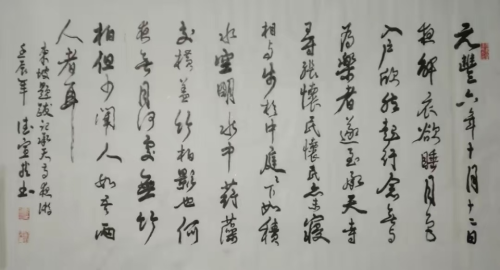 元豐六年十月十二日
夜解衣欲睡月色
入户欣然起行念無与
為樂者遂至承天寺
尋張懷民懷民亦未寢
相与步於中庭庭下如積
水空明水中荇藻
交橫蓋竹柏影也何
夜無月何處無竹
柏但少閑人如吾兩
人者耳
東坡題跋记承天寺夜游
壬辰年